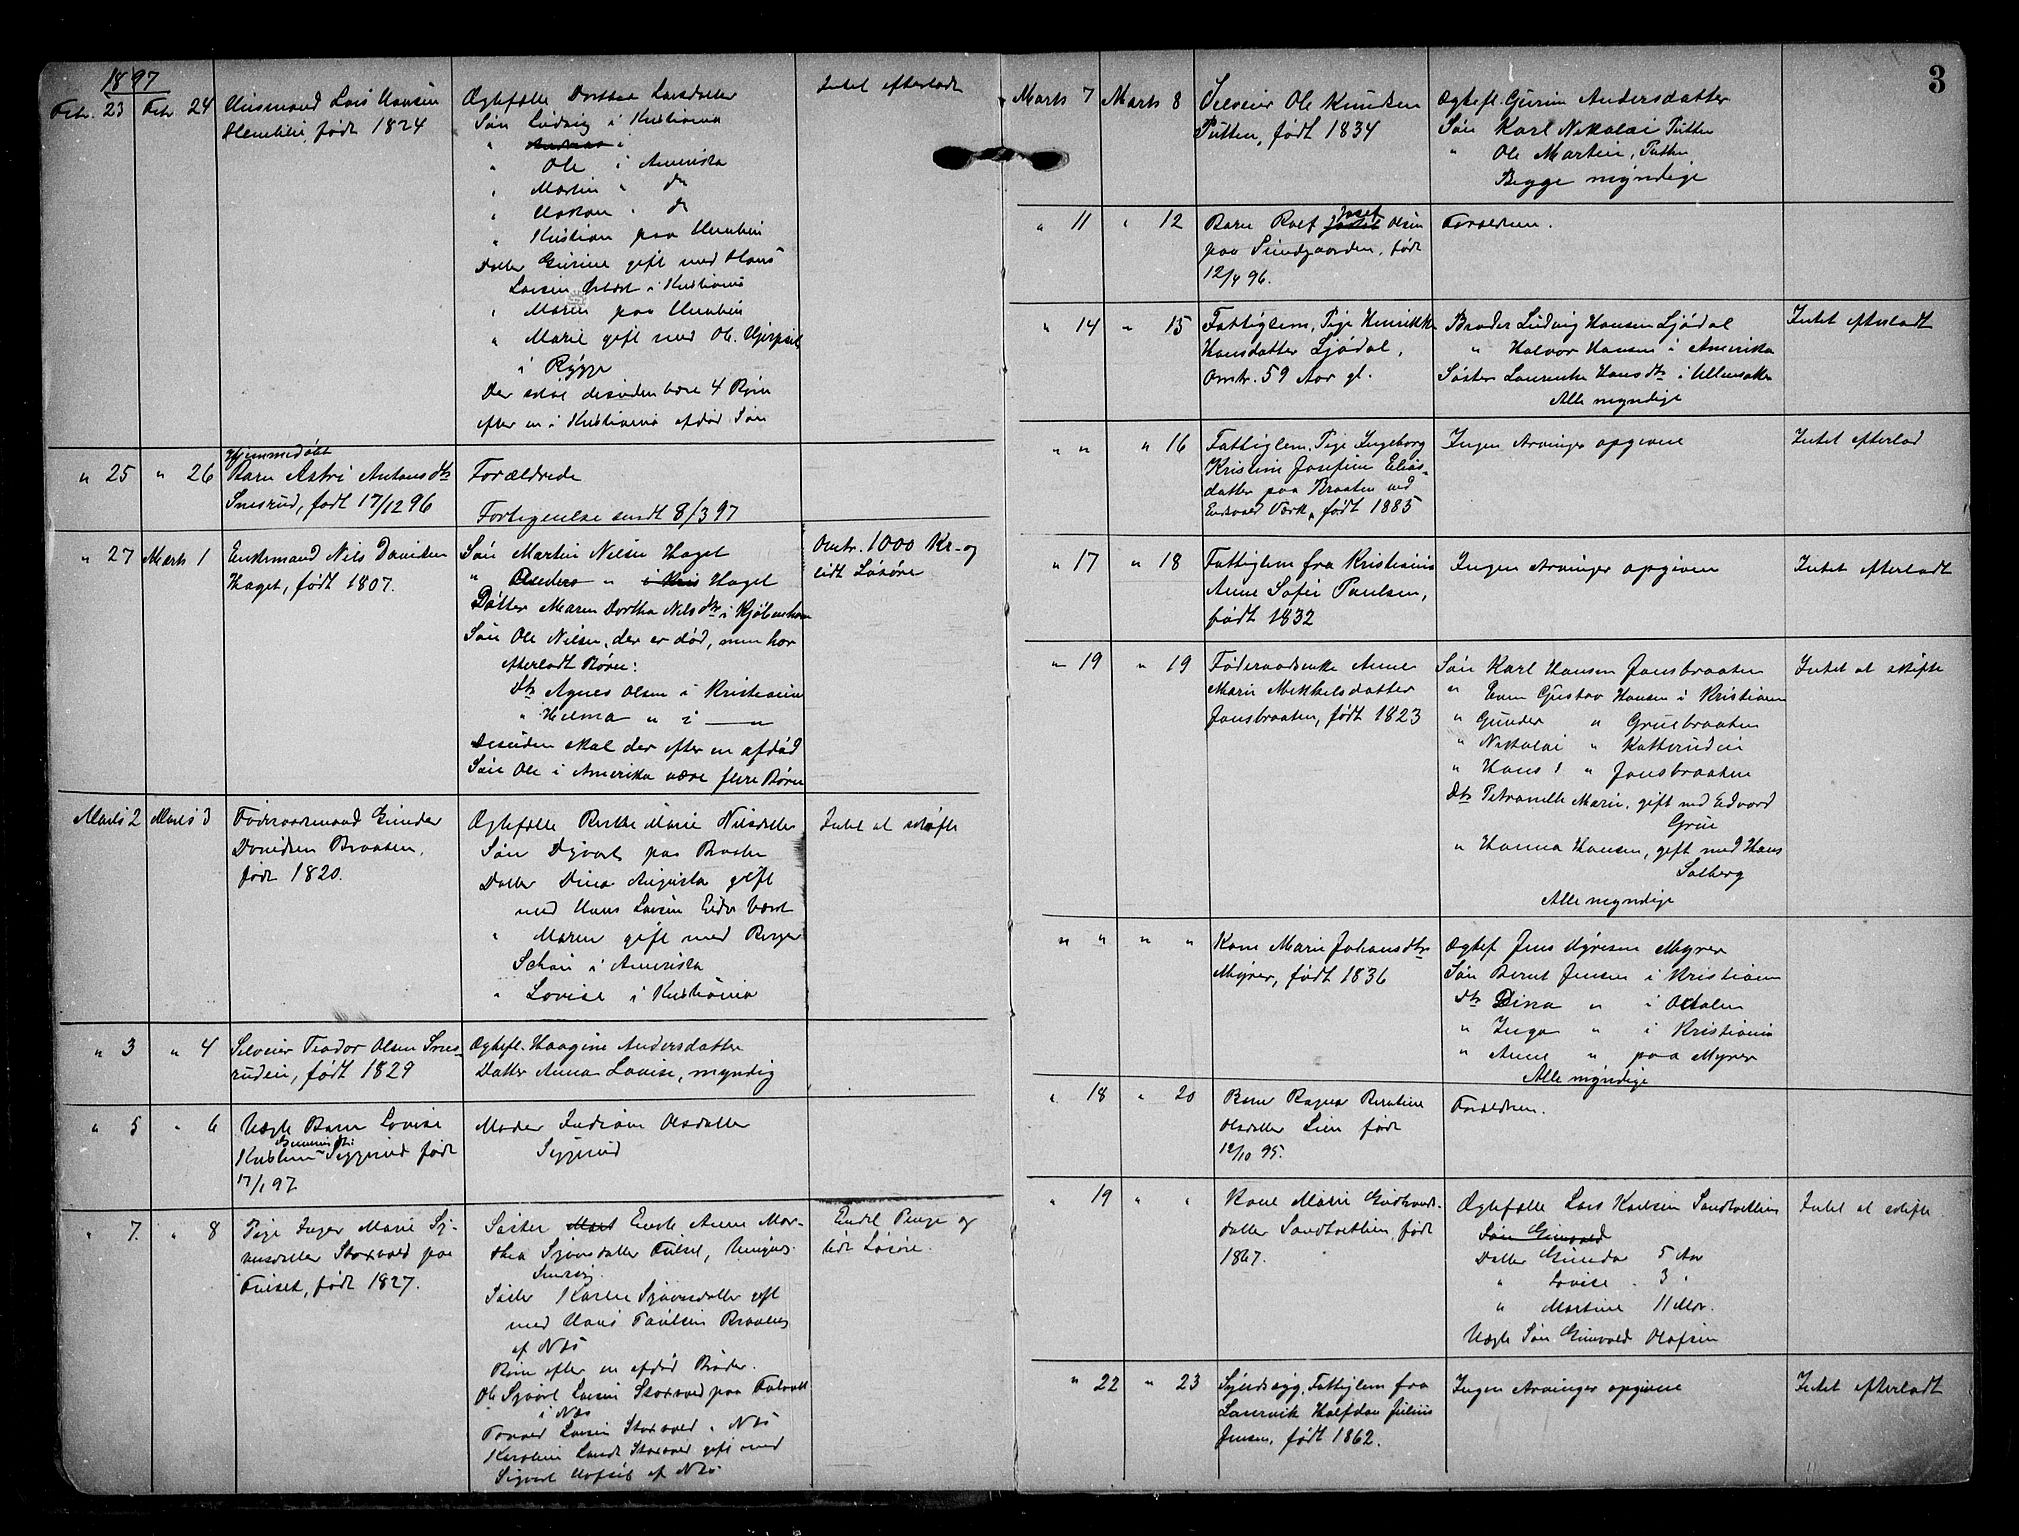 1897
Febr. 23 Febr 24 Husmand Lars Hansen
født 1824
Ægtefælle Dorthea Larsdatter
Søn Ludvig i Kristiania
" Andreas i
" Ole i Amerika
" Martin " do
" Haakon " do
" Kristian paa
Datter Gurine gift med Hans
Larsen i Kristiania
" Maren paa
" Marie gift med Ole
i Rygge
Der skal desuden være 4 Børn
efter en i Kristiania afdød Søn
Intet efterladt
" 25 " 26 Hjemmedøbt
Barn Astri Antonsdtr
Snesrud, født 17/12 96
Forældrede
Fortegnelse sendt 8/3 97
" 27 Marts 1 Enkemand Nils Davidsen
Haget, født 1807.
Søn Martin Nilsen Haget
" Anders " i Kris Haget
Datter Maren Dorthea Nilsdtr i Kjøbenhavn
Søn Ole Nilsen, der er død, men har
efterladt Børn:
Dtr Agnes Olsen i Kristiania
" Helma " i — "
Desuden skal der efter en afdød
Søn Ole i Amerika være flere Børn
Omtr. 1000 Kr. og
lidt Løsøre
Marts 2 Marts 3 Føderaadsmand Gunder
Davidsen Braaten,
født 1820.
Ægtefælle Berthe Marie Nilsdatter
Søn Sjøvat paa Braaten
Datter Dina Augusta gift
med Hans Larsen Eidsv Værk
" Maren gift med Birger
i Amerika
" Lovise i Kristiania
Intet at skifte
" 3 " 4 Selveier Teodor Olsen Snes-
rudeie, født 1829
Ægtefl. Haagine Andersdatter
Datter Anna Lovise, myndig
" 5 " 6 Uægte Barn Lovise
Kristine Siggerud født
17/1 97
Moder Indiane Olsdatter
Siggerud
" 7. " 8 Pige Inger Marie Sj-
øversdatter Storøved paa
Tulset, født 1827.
Søster Enke Anne Mar-
thea Sjøversdatter Tulset,
Søster Karen Sjøversdatter gift
med Hans Paulsen Braaten
af Næs
Børn efter en afdød Broder.
Ole Larsen paa
i Næs
Larsen i Næs
Karoline gift med
Sigvart af Næs
Endel Penge og
lidt Løsøre.
3
Marts 7 Marts 8 Selveier Ole Knudsen
Putten, født 1834
Ægtefl. Gurine Andersdatter
Søn Karl Nikolai Putten
" Ole Martin, Putten
Begge myndige
" 11 " 12 Barn Rolf Josef Olsen
paa Sundgaarden, født
12/4 96.
Forældren.
" 14 " 15 Fattiglem, Pige Henrikke
Hansdatter Ljødal,
Omtr. 59 Aar gl.
Broder Ludvig Hansen Ljødal
" Halvor Hansen i Amerika
Søster Laurentse Hansdtr i Ullensaker
Alle myndige
Intet efterladt
" " " 16 Fattiglem, Pige Ingeborg
Kristine Josefine Elias-
datter paa Braaten ved
Eidsvold Værk, født 1885
Ingen Arvinger opgivne
Intet efterlad
" 17 " 18 Fattiglem fra Kristiania
Anne Sofie Paulsen,
født 1832
Ingen Arvinger opgiven
Intet efterladt
" 19 " 19 Føderaadsenke Anne
Marie Mikkelsdatter
Jonsbraaten, født 1823
Søn Karl Hansen Jonsbraaten
" Even Gustav Hansen i Kristiania
" Gunder " Gruebraaten
" Nikolai " Katterudeie
" Hans " Jonsbraaten
Dtr Petronelle Marie, gift med Edvard
Grue
" Hanna Hansen, gift med Hans
Solberg
Alle myndige
Intet at skifte
" " " " Kone Marie Johansdtr
Myrer, født 1836
Ægtef Jens Myrer
Søn Bernt Jensen i Kristiania
dtr Dina " i Odalen
" Inga " i Kristiania
" Anne " paa Myrer
Alle myndige
" 18 " 20 Barn Ragna Berntine
Olsdatter Lien født
12/10 95.
Forældren.
" 19 " " Kone Marie Gudbrands-
datter Sandbotten, født
1867.
Ægtefælle Lars Karlsen Sandbotten
Søn Gunvald
Datter Gunda 5 Aar
" Lovise . 3 "
" Martine 11 Mdr.
Uægte Søn Gunvald Olafsen
Intet at skifte
" 22 " 23 Sindssyg, Fattiglem fra
Laurvik Halfdan Julius
Jensen, født 1862.
Ingen Arvinger opgivne
Intet efterladt